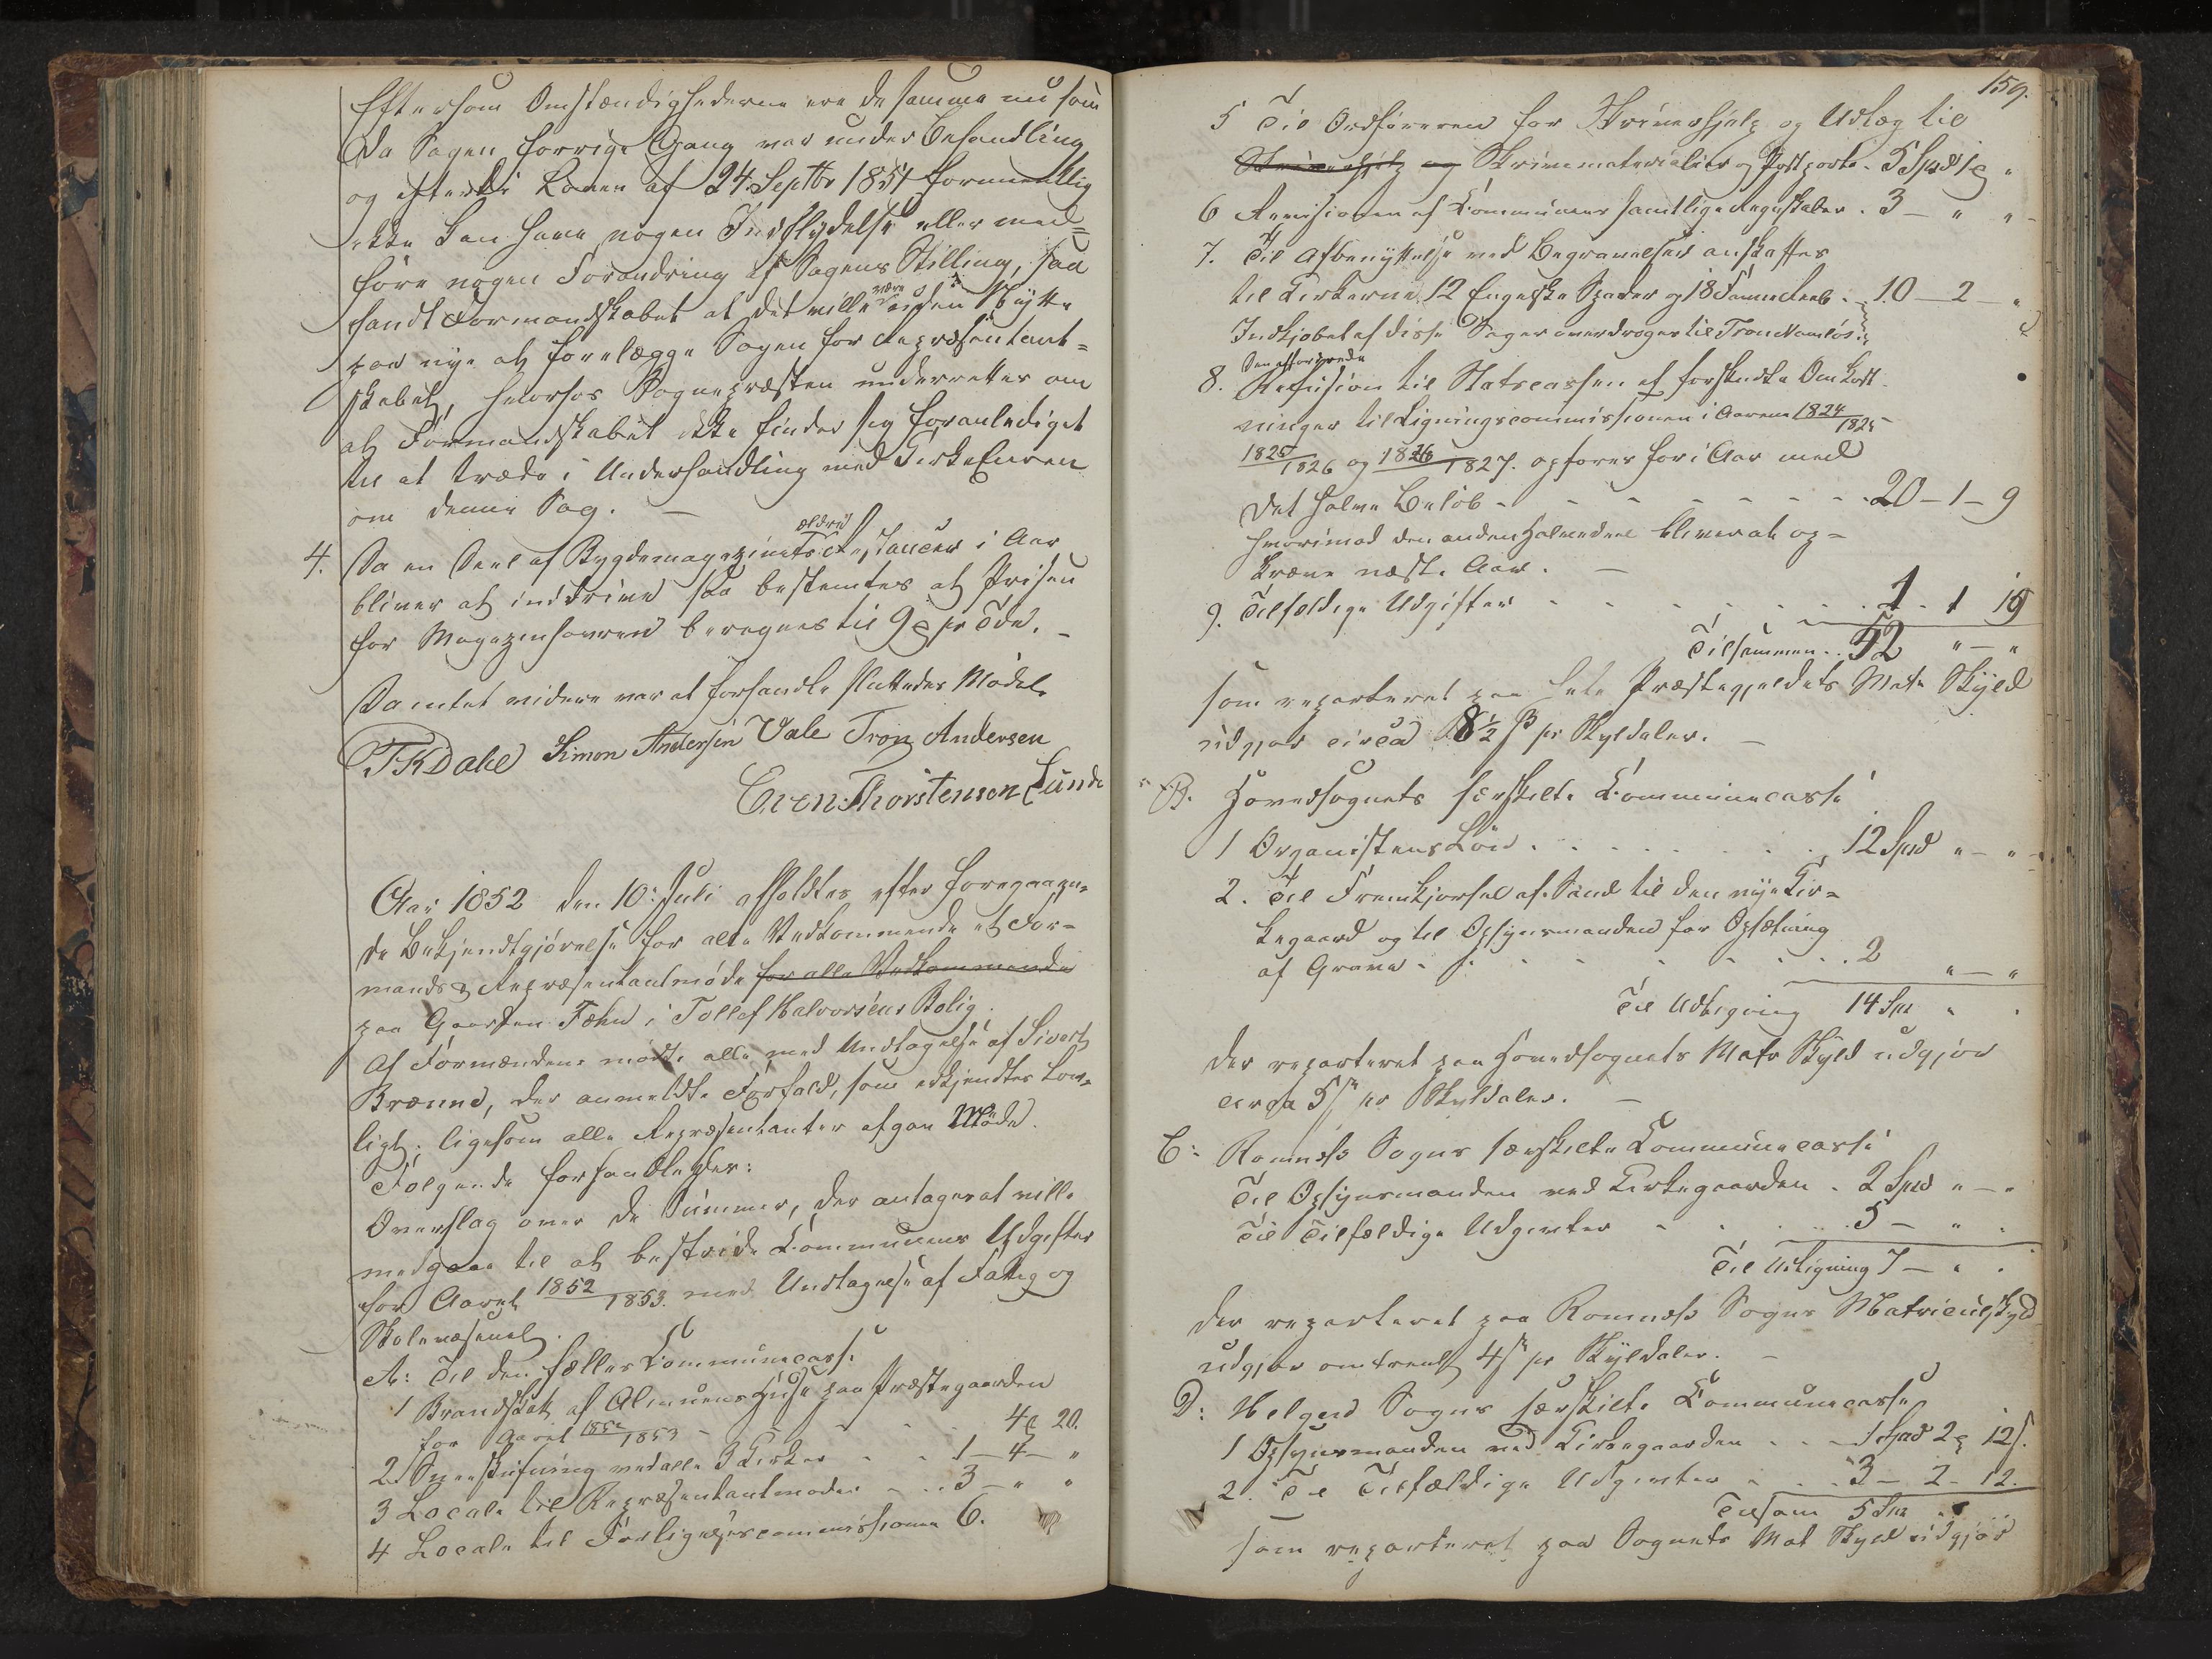 Eftersom Omstændighederne ere de samme nu som
da Sagen forrige Gang var under Behandling
og efterdi Loven af 24 Septbr 1851 formentlig
ikke kan have nogen Indflydelse eller med=
føre nogen Forandring af Sagens Stilling, saa
fandt Formandskabet at det ville være uden Nytte
paa nye at forelægge Sagen for Repræsentant=
skabet, hvorfor Sognepræsten underrettes om
at Formandskabet ikke finder sig foranlediget
til at træde i Underhandling med KirkeEieren
om denne Sag. —
4. Da en Deel af Bygdemagazinets ældre Restancer i Aar
bliver at inddrive saa bestemtes at Prisen
for Magazinhavren beregnes til 9 pr Tde. —
Da intet videre var at forhandle sluttedes Mødet
TKDahl Simon Andersen Vale Tron Andersen
Even Thorstensen Lunde
Aar 1852 den 10: Juli afholdtes efter foregaaen=
de Bekjendtgjørelse for alle Vedkommende et For=
mands & Repræsentantmøde for alle Vedkommende
paa Gaarden Fæhn i Tollef Halvorsens Bolig.
Af Formændene mødte alle med Undtagelse af Sivert
Brænne, der anmeldte Forfald, som erkjendtes lov=
ligt, ligesom alle Repræsentanter afgav Møde.
Følgende forhandledes:
Overslag over de Summer, der antages at ville
medgaae til at bestride Communens Udgifter
for Aaret 1852/1853 med Undtagelse af Fattig og
Skolevæsenet.
A: Til den fælles Communecasse
1 Brandskat af Almuens Huse paa Præstegaarden
for Aaret 1852/1853 - - 4 20.
2. Sneeskufning ved alle 3 Kirker - - 1 – 4 – "
3 Locale til Repræsentantmøder - - 3 – " "
4 Locale til Forligelsescommissionen 6.
159.
5 Til Ordføreren for Skriverhjelp og Udlæg til
Skriverhjelp og Skrivematerialier og Postporto - 5 Spd 1 "
6 Revisionen af Communens samtlige Regnskaber . 3 – " "
7. Til Afbenyttelse ved Begravelser anskaffes
til Kirkerne 12 Engelske Spader og 18 Favne Reeb . . 10 – 2 – "
Indkjøbet af disse Sager overdroges til Tron Namløs
8. Den efterspurgte Refusion til Statscassen af forskudte Omkost
ninger til Ligningscommissionen i Aarene 1824/1825
1825/1826 og 1826/1827. opføres for i Aar med
det halve Beløb - - - - - - - 20 – 1 – 9
hvorimod den anden Halvedeel bliver at op=
kræve næste Aar. —
9. Tilfældige Udgifter - - - - - 1 . 1 19
Tilsammen . . 52 " – "
som reparteret paa hele Præstegjeldets Matr Skyld
udgjør circa 8½ ß pr Skyldaler. —
B. Hovedsognets særskilte Communecasse
1 Organistens Løn . . . . . 12 Spd " – "
2. Til Fremkjørsel af Sand til den nye Kir=
kegaard og til Opsynsmanden for Opsætning
af Grave - - - - - - - . . 2 " – "
Til Udligning 14 Spd " .
der reparteret paa Hovedsognets Matr Skyld udgjør
circa 5 ß pr Skyldaler. —
C: Romnæs Sogns særskilte Communecasse
Til Opsynsmanden ved Kirkegaarden . 2 Spd " – "
Til Tilfældige Udgivter - - - - 5 – " "
Til Udligning 7 – " .
der reparteret paa Romnæs Sogns Matriculskyld
udgjør omtrent 4 ß pr Skyldaler. —
D: Helgens Sogns særskilte Communecasse
1 Opsynsmanden ved Kirkegaarden - - - 1 Spd 2 12 ß.
2. Til Tilfældige Udgivter - - - 3 – 2 – 12.
Tilsam 5 Spd
som reparteret paa Sognets Mat Skyld udgjør